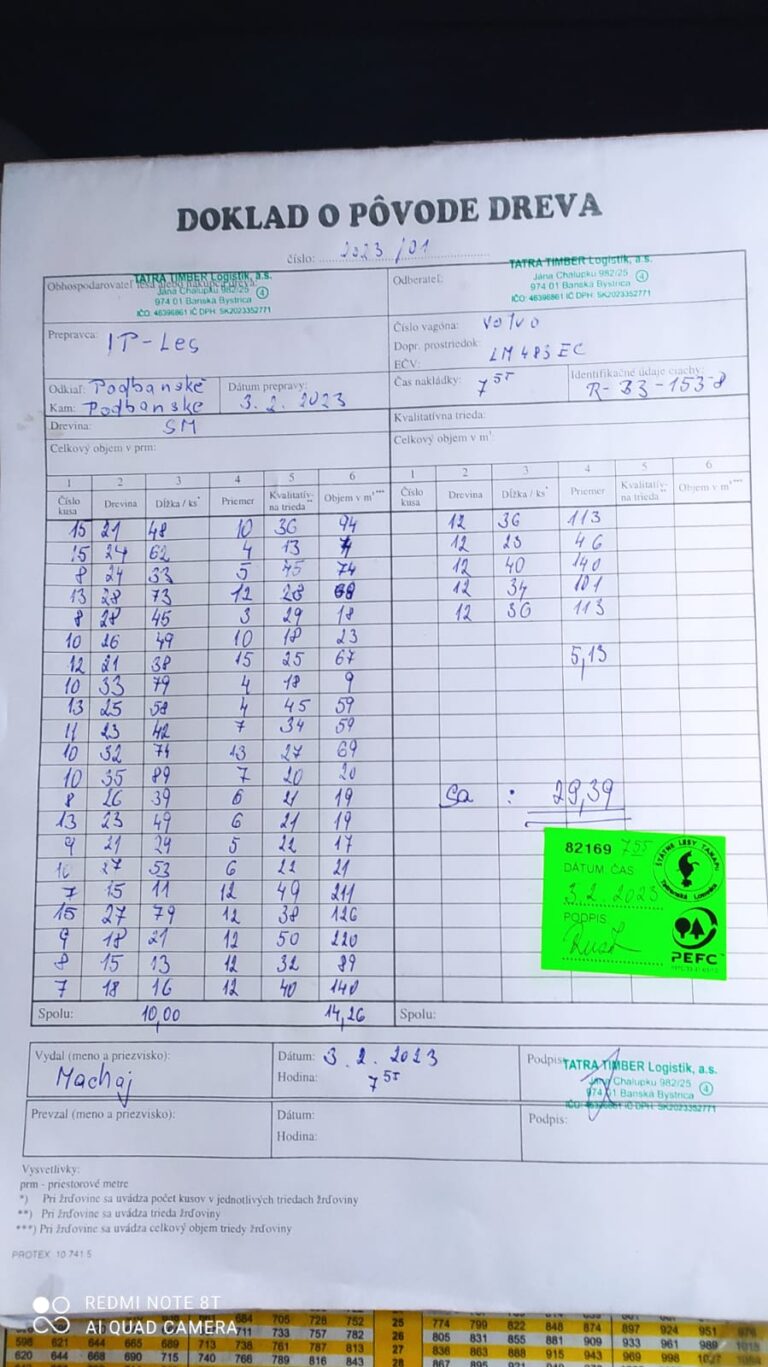 DOKLAD O PÔVODE DREVA
číslo: 2023/01
Obhospodarovateľ lesa alebo nákupca dreva:
TATRA TIMBER Logistik, a.s.
Jána Chalupku 982/25 4
974 01 Banská Bystrica
IČO: 46396861 IČ DPH: SK2023352771
Odberateľ:
TATRA TIMBER Logistik, a.s.
Jána Chalupku 982/25 4
974 01 Banská Bystrica
IČO: 46396861 IČ DPH: SK2023352771
Prepravca: IP-Les
Číslo vagóna: Volvo
Dopr. prostriedok:
EČV: LM483EC
Odkiaľ: Podbanské
Kam: Podbanske
Dátum prepravy: 3.2.2023
Čas nakládky: 7 55
Identifikačné údaje ciachy: R-33-153-8
Drevina: SM
Kvalitatívna trieda:
Celkový objem v prm:
Celkový objem v m³:
1 2 3 4 5 6 1 2 3 4 5 6
Číslo kusa Drevina Dĺžka / ks* Priemer Kvalitatív-na trieda** Objem v m³*** Číslo kusa Drevina Dĺžka / ks* Priemer Kvalitatív-na trieda** Objem v m³***
15 21 48 10 36 94 12 36 113
15 24 62 4 13 4 12 23 46
8 24 33 5 45 74 12 40 140
13 28 73 12 28 68 12 34 101
8 28 45 3 29 18 12 36 113
10 26 49 10 18 23
12 21 38 15 25 67 5,13
10 33 79 4 18 9
13 25 58 4 45 59
11 23 42 7 34 59
10 32 74 13 27 69
10 35 89 7 20 20
8 26 39 6 21 19 Sa : 29,39
13 23 49 6 21 19
9 21 29 5 22 17
16 27 53 6 22 21
7 15 11 12 49 211
15 27 79 12 38 126
9 18 21 12 50 220
8 15 13 12 32 89
7 18 16 12 40 140
Spolu: 10,00 14,26 Spolu:
82169 755
DÁTUM ČAS
3.2.2023
PODPIS
ŠTÁTNE LESY TANAPU
Tatranská Lomnica
PEFC
Vydal (meno a priezvisko): Machaj
Dátum: 3.2.2023
Hodina: 7 55
Podpis:
TATRA TIMBER Logistik, a.s.
Jána Chalupku 982/25 4
974 01 Banská Bystrica
IČO: 46396861 IČ DPH: SK2023352771
Prevzal (meno a priezvisko):
Dátum:
Hodina:
Podpis:
Vysvetlivky:
prm - priestorové metre
*) Pri žrďovine sa uvádza počet kusov v jednotlivých triedach žrďoviny
**) Pri žrďovine sa uvádza trieda žrďoviny
***) Pri žrďovine sa uvádza celkový objem triedy žrďoviny
PROTEX 10 741 5
REDMI NOTE 8T
AI QUAD CAMERA
684 705 728 752 25 774 799 822 848 874 897 924 951
598 621 644 665 689 711 733 757 782 26 805 831 855 881 909 933 961 989 1018
620 644 668 690 715 738 761 787 813 27 836 863 888 915 943 969 998 1027
740 766 789 816 843 28 867 895